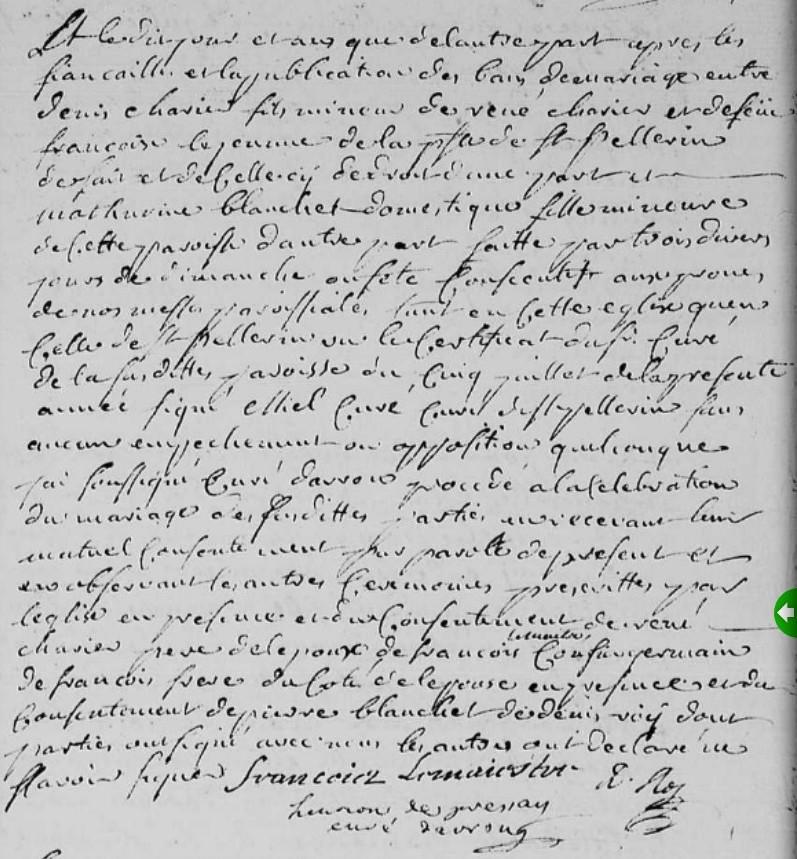 Et le dit jour et an que delautre part apres les
fiancailles et la publication des bans de mariage entre
denis charier fils mineur de rené charier et de feüe
francoise lejeune de la psse de St Pellerin
de fait et de Celle cy de droit dune part et
mathurine blanchet domestique fille mineure
de Cette paroisse dautre part faitte par trois divers
jours de dimanche ou fete Consecutifs aux prones
de nos messes paroissiales tant en Cette eglise quen
Celle de St Pellerin vu le Certificat du sr. Curé
de la susditte paroisse du Cinq juillet de la presente
année signé Curé de St pellerin sans
aucun empechement ou opposition quelconque
jai soussigné Curé darrou procedé a la Celebration
du mariage des susdittes parties en recevant leur
mutuel Consentement par parolle de present et
en observant les autres Ceremonies prescrittes par
leglise en presence et du Consentement de rené
charier pere de lepoux de francois lemaitre Cousin germain
de francois frere du Coté de lepouse en presence et du
Consentement de pierre blanchet de denis roy dont
parties ont signé avec nous les autres ont declaré ne
scavoir signer francoiez Lemaiestre D. Roy
de pressay
curé darrou